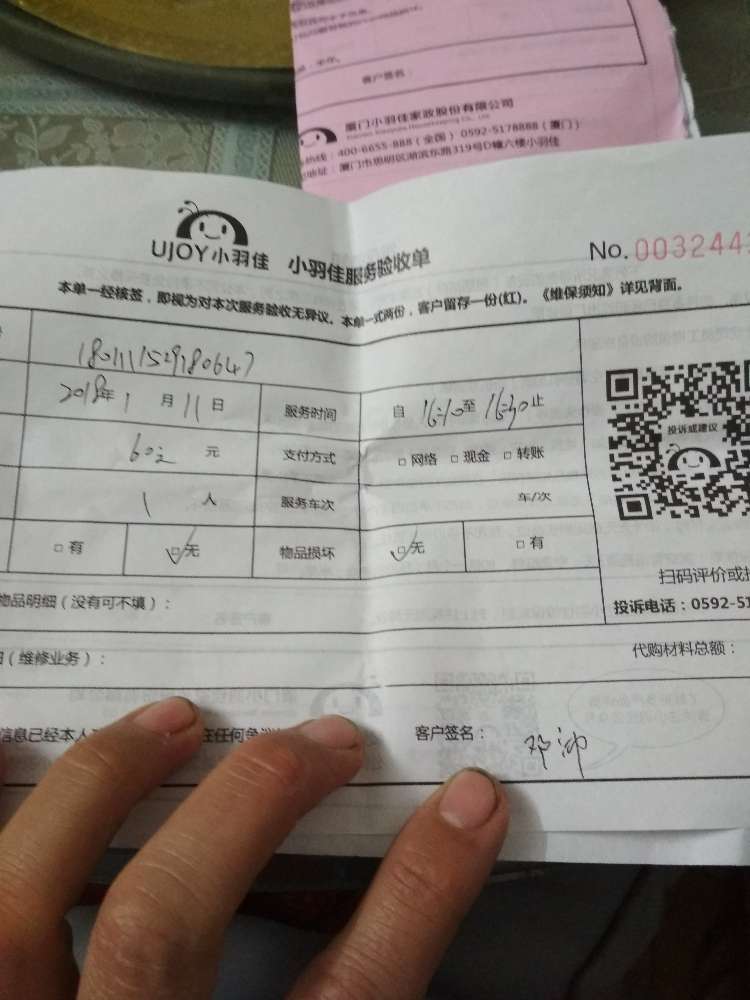 客户签名：
厦门小羽佳家政股份有限公司
热线：400-6655-888（全国） 0592-5178888（厦门）
地址：厦门市思明区湖滨东路319号D幢六楼小羽佳
UJOY小羽佳 小羽佳服务验收单
No. 003244
本单一经核签，即视为对本次服务验收无异议。本单一式两份，客户留存一份(红)。《维保须知》详见背面。
180111529180647
2018年1月11日 服务时间 自 16:10至 16:30止
60元 元 支付方式 □ 网络 □ 现金 □ 转账
投诉或建议
1 人 服务车次 车/次
□ 有 □ 无 物品损坏 □ 无 □ 有
扫码评价或
物品明细（没有可不填）：
投诉电话：0592-51
（维修业务）：
代购材料总额：
信息已经本人 在任何争议
客户签名： 邓沛